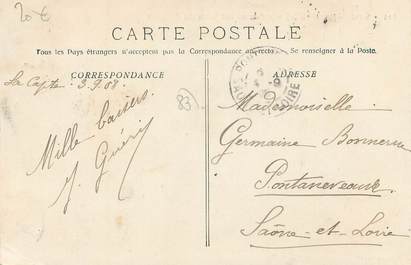 20 €
CARTE POSTALE
Tous les Pays étrangers n'acceptent pas la Correspondance au recto.—Se renseigner à la Poste.
CORRESPONDANCE
ADRESSE
La Capte 3.9.08.
83)
Mille baisers.
Mademoiselle
Germaine
Pontanevaux
Saône-et-Loire